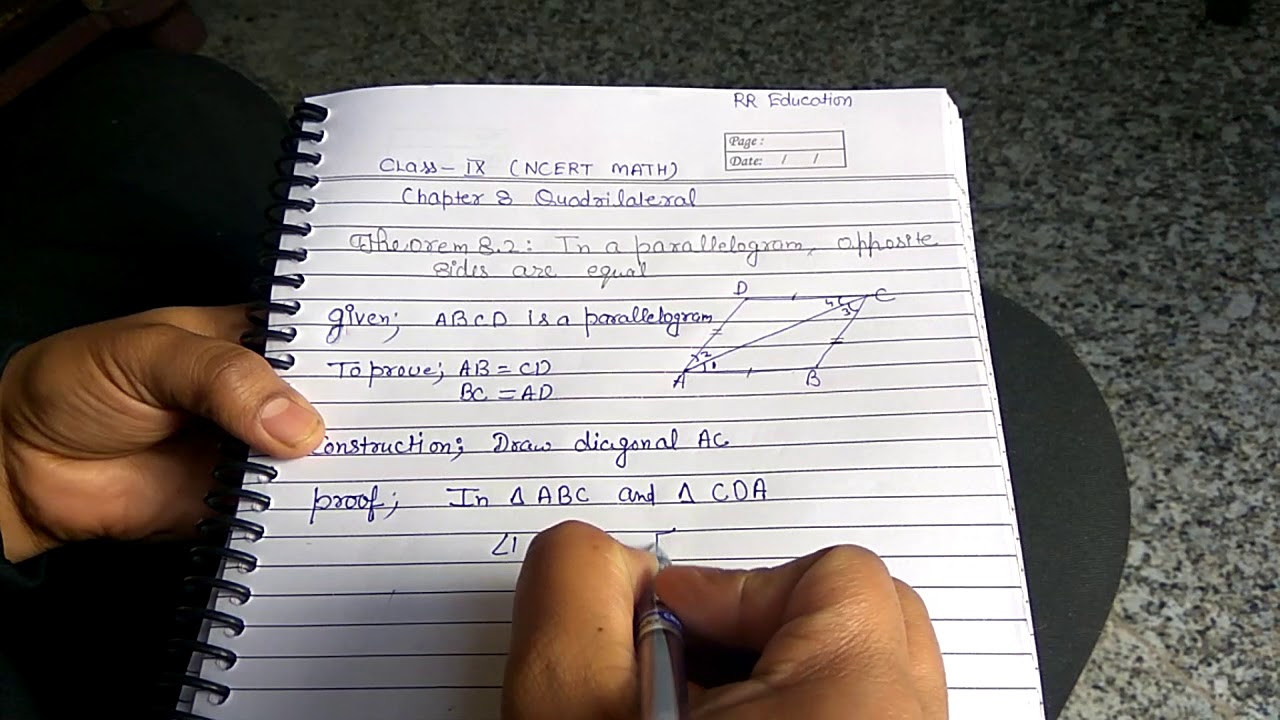 RR Education
Page :
Date: / /
Class - IX (NCERT MATH)
Chapter 8 Quadrilateral
Theorem 8.2: In a parallelogram, opposite
sides are equal
D C
4 3
given; ABCD is a parallelogram
2 1
A B
To prove; AB = CD
BC = AD
Construction; Draw diagonal AC
proof; In Δ ABC and Δ CDA
∠1